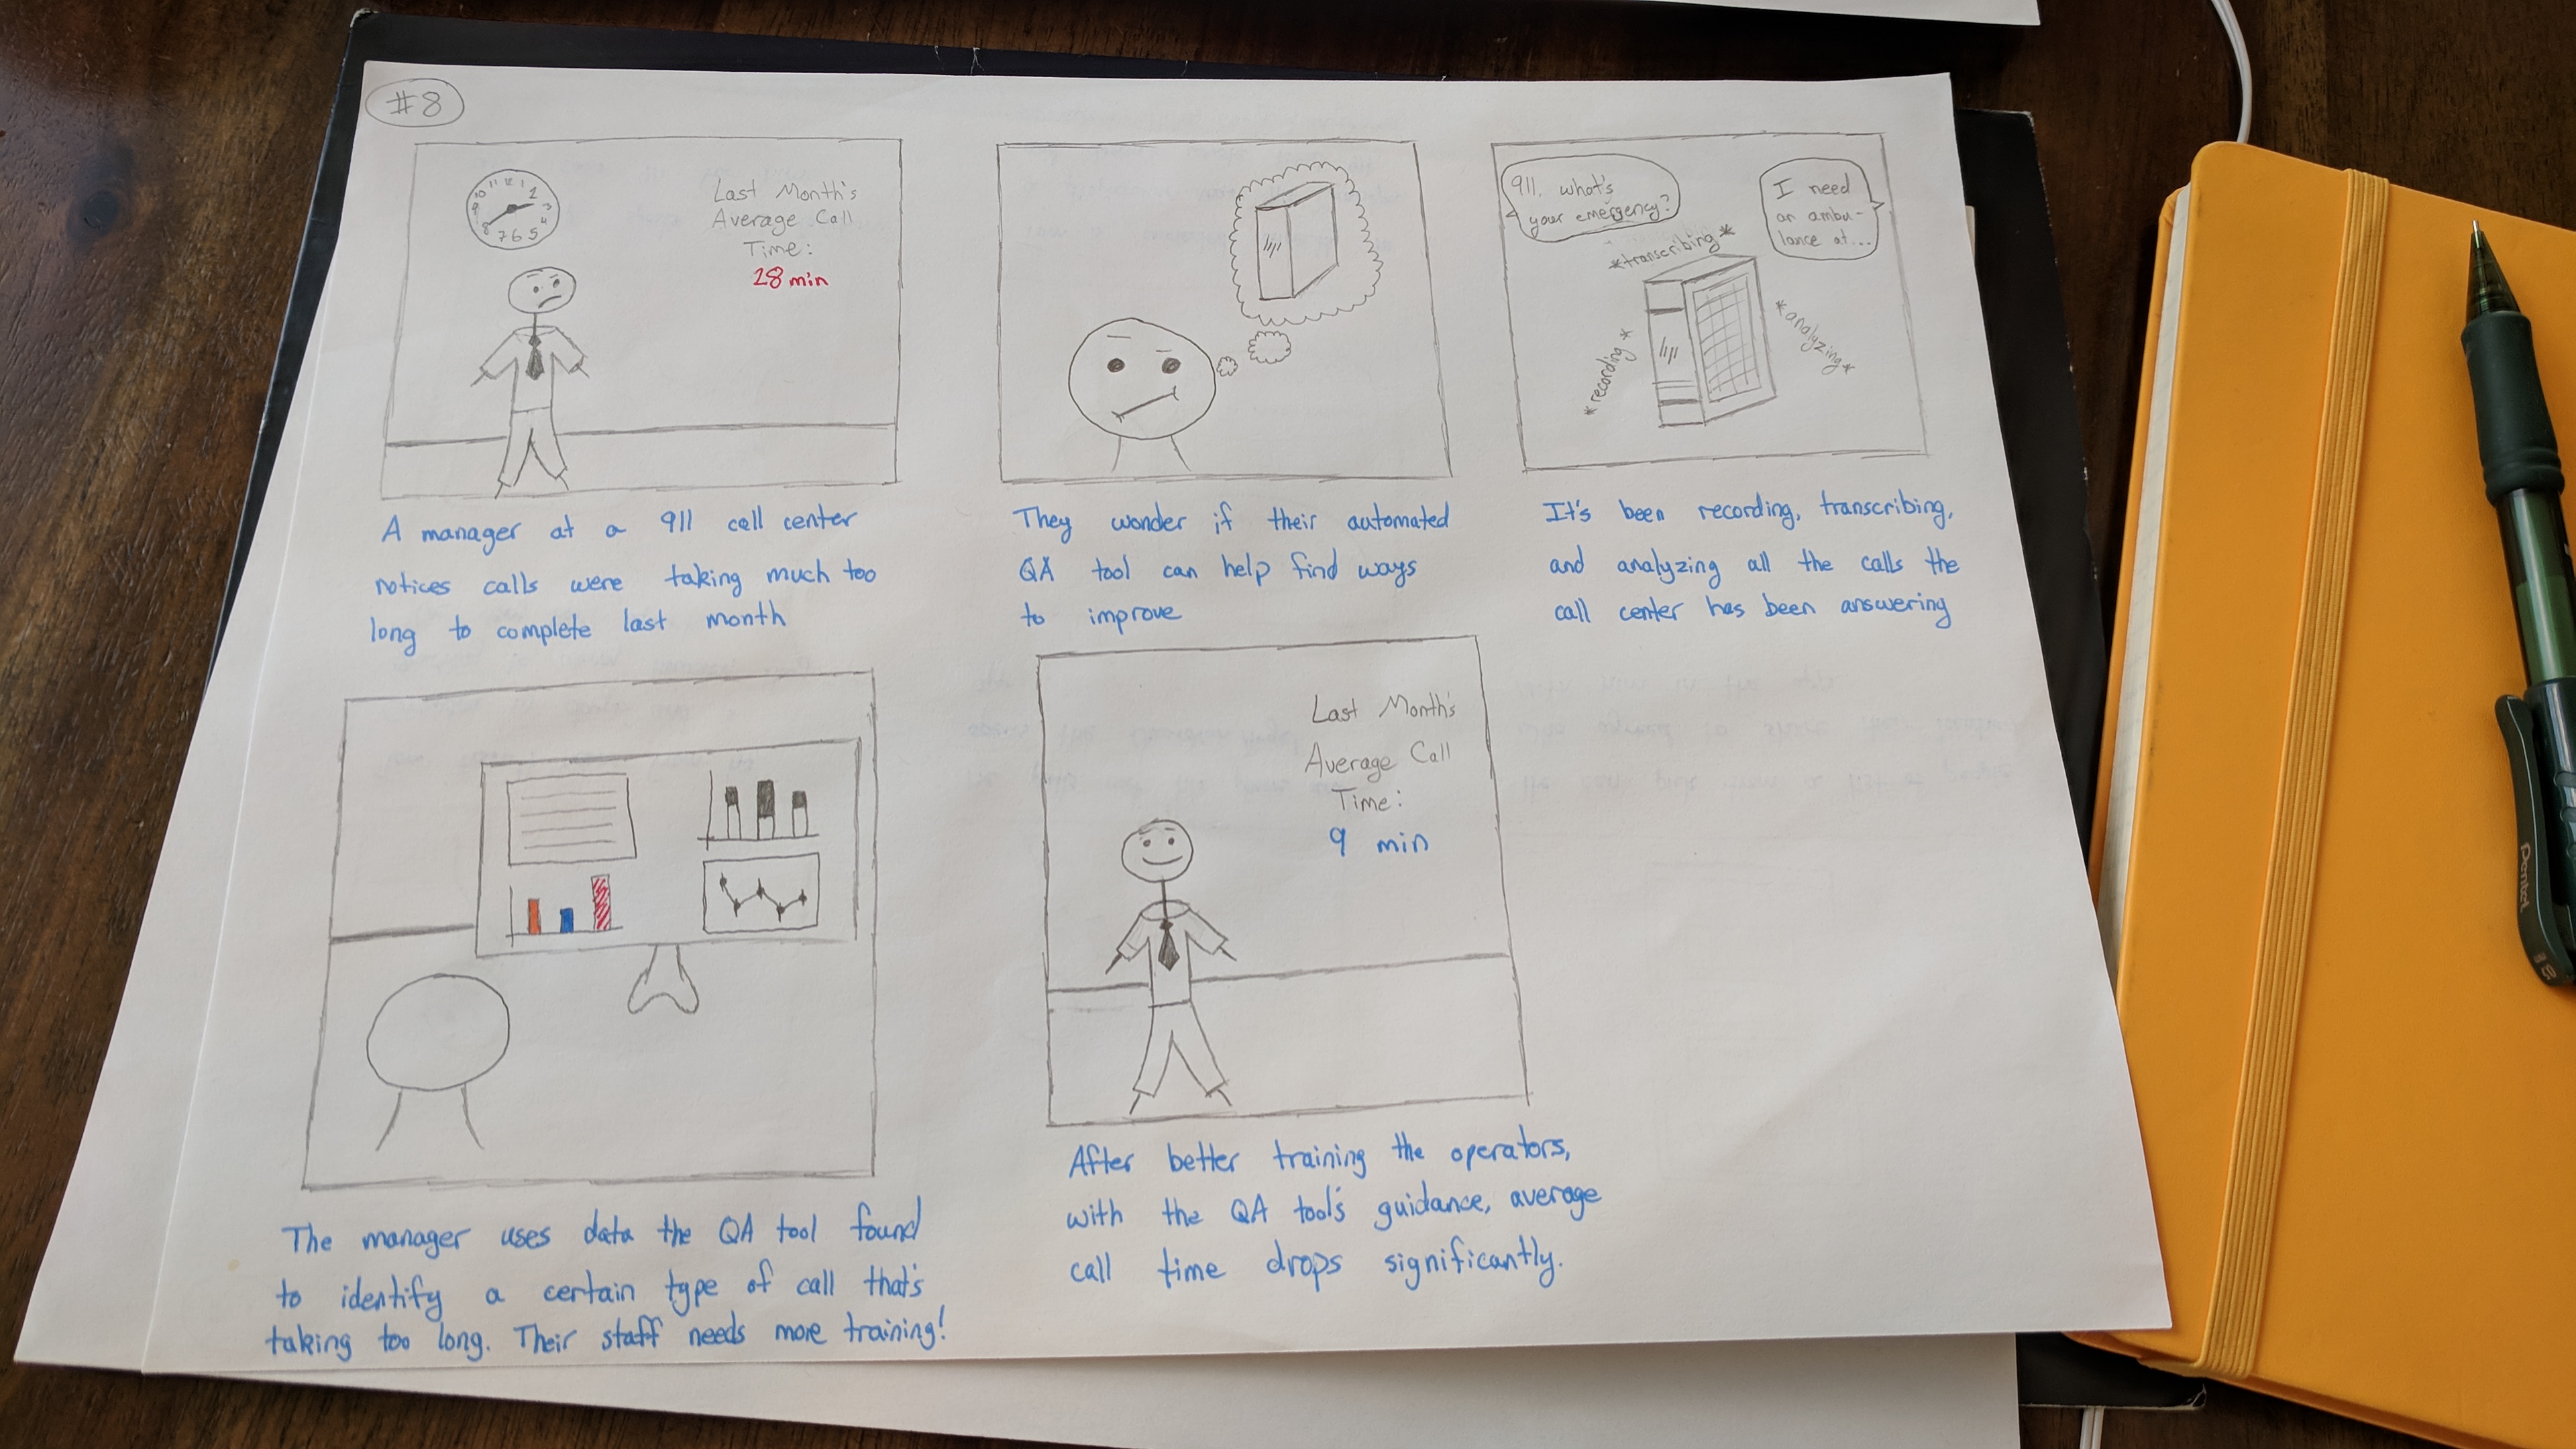 #8
11 12 1
10 2
9 3
8 4
7 6 5
Last Month's
Average Call
Time:
28 min
A manager at a 911 call center
notices calls were taking much too
long to complete last month
They wonder if their automated
QA tool can help find ways
to improve
911, what's
your emergency?
I need
an ambu-
lance at...
*transcribing*
*recording*
*analyzing*
It's been recording, transcribing,
and analyzing all the calls the
call center has been answering
The manager uses data the QA tool found
to identify a certain type of call that's
taking too long. Their staff needs more training!
Last Month's
Average Call
Time:
9 min
After better training the operators,
with the QA tool's guidance, average
call time drops significantly.
Pentel